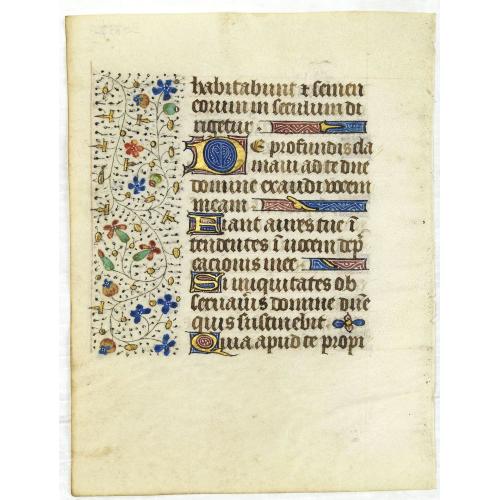 habitabunt & semen
eorum in seculum di
rigetur.
De profundis cla
maui ad te dñe
domine exaudi vocem
meam.
Fiant aures tue ī
tendentes ī uocem dep̄
cacionis mee.
Si iniquitates ob
seruaūis domine dñe
quis sustinebit.
Quia apud te propi